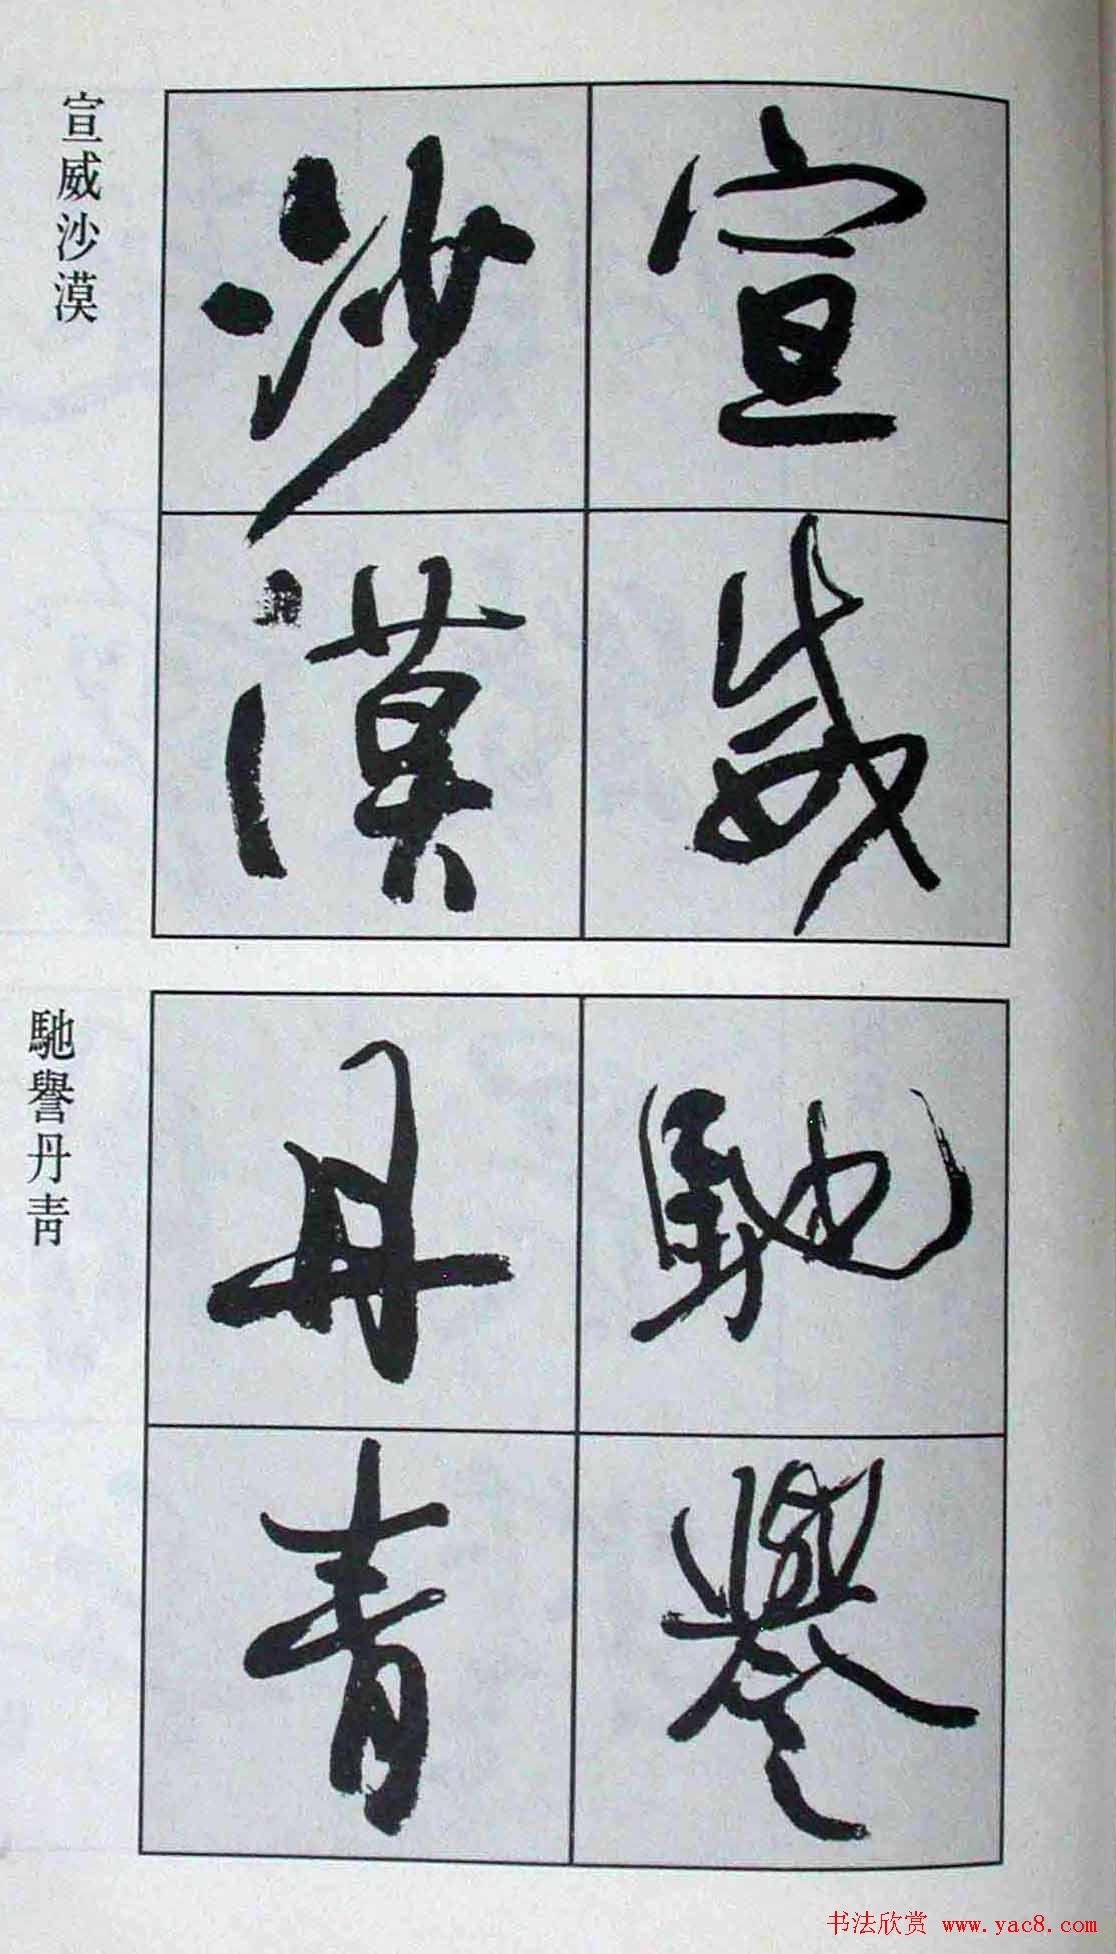 宣威
沙漠
宣威沙漠
馳譽
丹青
馳譽丹青
书法欣赏 www.yac8.com